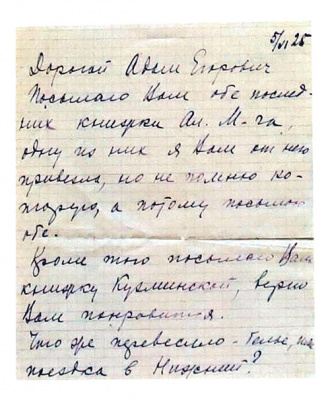 5/VI 25
Дорогой Адам Егорович
Посылаю Вам обе послед-
них книжки Ал. М-ча,
одну из них я Вам от него
привезла, но не помню ко-
торую, а потому посылаю
обе.
Кроме того посылаю Вам
книжку Кузминской, верно
Вам понравится.
Что же перевесило -
поездка в Нижний?